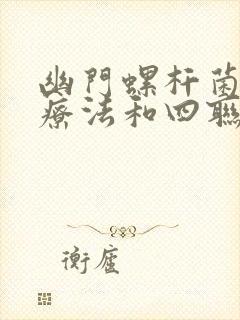 幽門螺杆菌
療法和四聯
衡廬